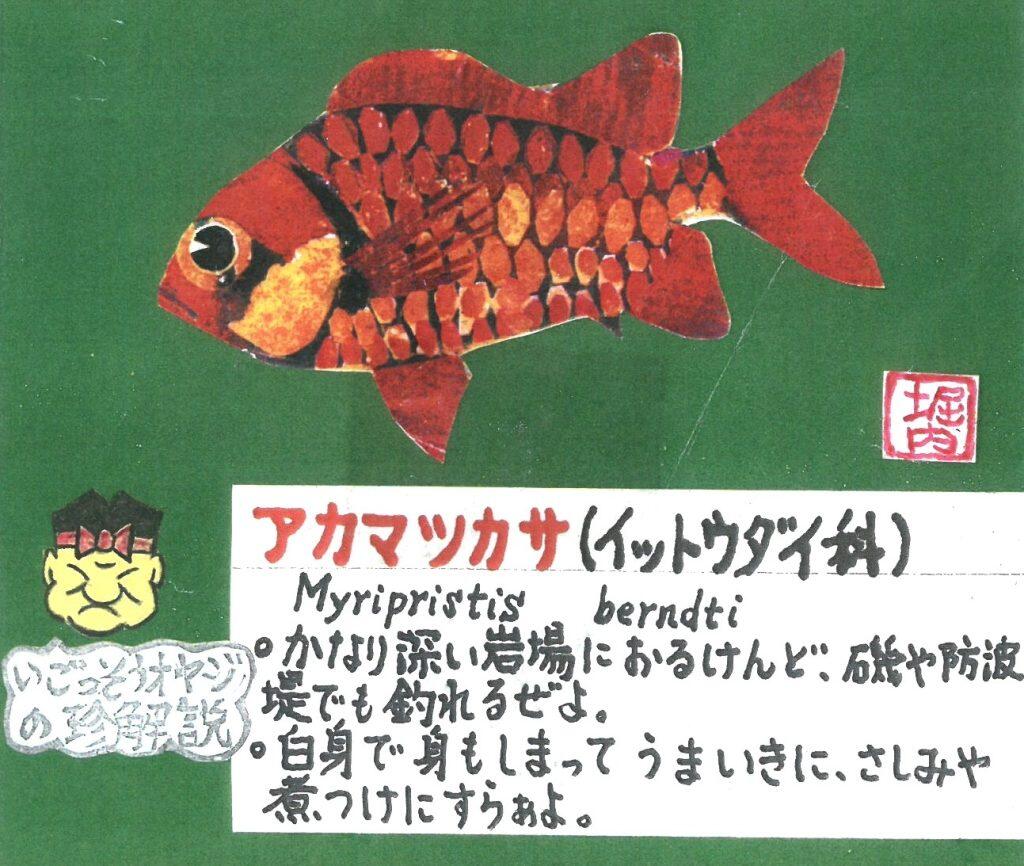 堀内
アカマツカサ(イットウダイ科)
Myripristis berndti
。かなり深い岩場におるけんど、磯や防波
堤でも釣れるぜよ。
。白身で身もしまってうまいきに、さしみや
煮つけにすらぁよ。
いごっそうオヤジ
の珍解説